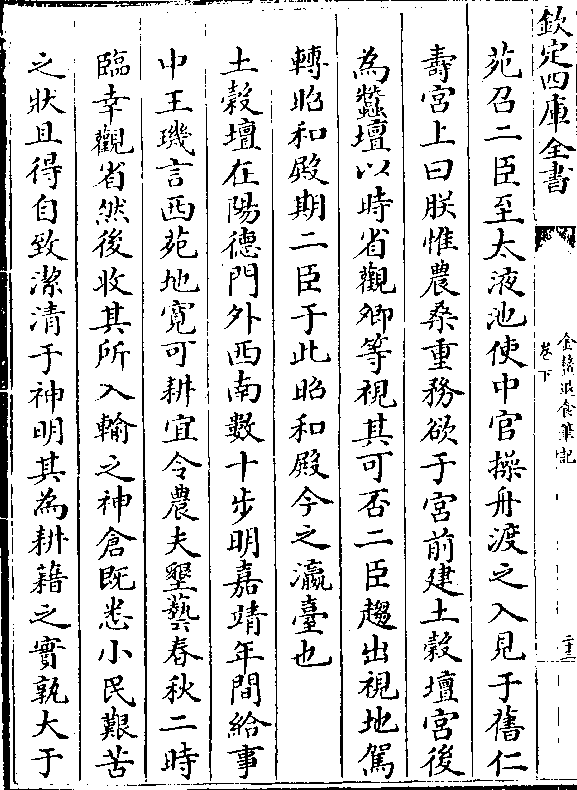 欽定四庫全書
金鰲退食筆記
卷下
苑召二臣至太液池使中官操舟渡之入見于舊仁
壽宫上曰朕惟農桑重務欲于宫前建土榖壇宫後
為蠶壇以時省觀卿等視其可否二臣趨出視地駕
轉昭和殿期二臣于此昭和殿今之瀛臺也
土榖壇在陽德門外西南數十步明嘉靖年間給事
中王璣言西苑地寛可耕宜令農夫墾藝春秋二時
臨幸觀省然後收其所入輸之神倉既悉小民艱苦
之狀且得自致潔清于神明其為耕藉之實孰大于